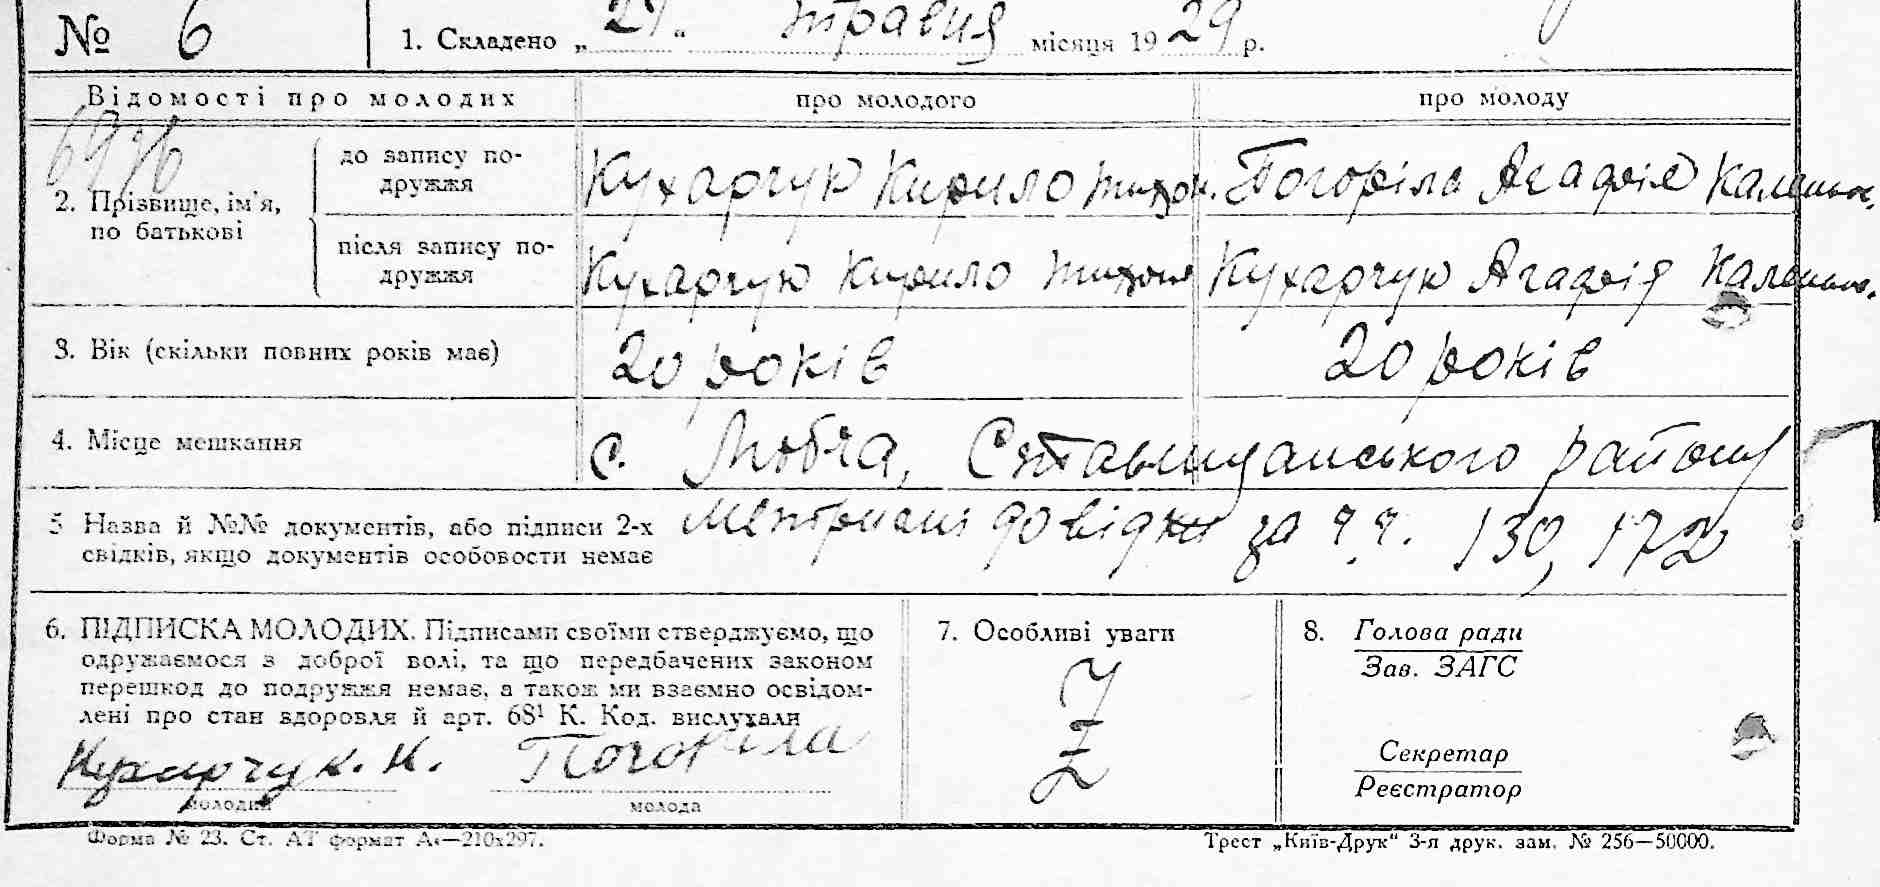 № 6 1. Складено „ 21 “ травня місяця 1929 р.
Відомості про молодих про молодого про молоду
6976
2. Прізвище, ім’я, по батькові
до запису по-
дружжя
Кухарчук Кирило Тихон. Погоріла Агафія Каленик.
після запису по-
дружжя
Кухарчук Кирило Тихон Кухарчук Агафія Каленик.
3. Вік (скільки повних років має) 20 років 20 років
4. Місце мешкання с. Любча, Ставищанського району
5 Назва й №№ документів, або підписи 2-х
свідків, якщо документів особовости немає
Метричні довідки за ч.ч. 130, 172
6. ПІДПИСКА МОЛОДИХ. Підписами своїми стверджуємо, що
одружаємося з доброї волі, та що передбачених законом
перешкод до подружжя немає, а також ми взаємно освідом-
лені про стан здоровля й арт. 68¹ К. Код. вислухали
Кухарчук. К. Погоріла
молодий молода
7. Особливі уваги
8. Голова ради
Зав. ЗАГС
Секретар
Реєстратор
Форма № 23. Ст. АТ формат А₄—210х297.
Трест „Київ-Друк“ 3-я друк. зам. № 256—50000.